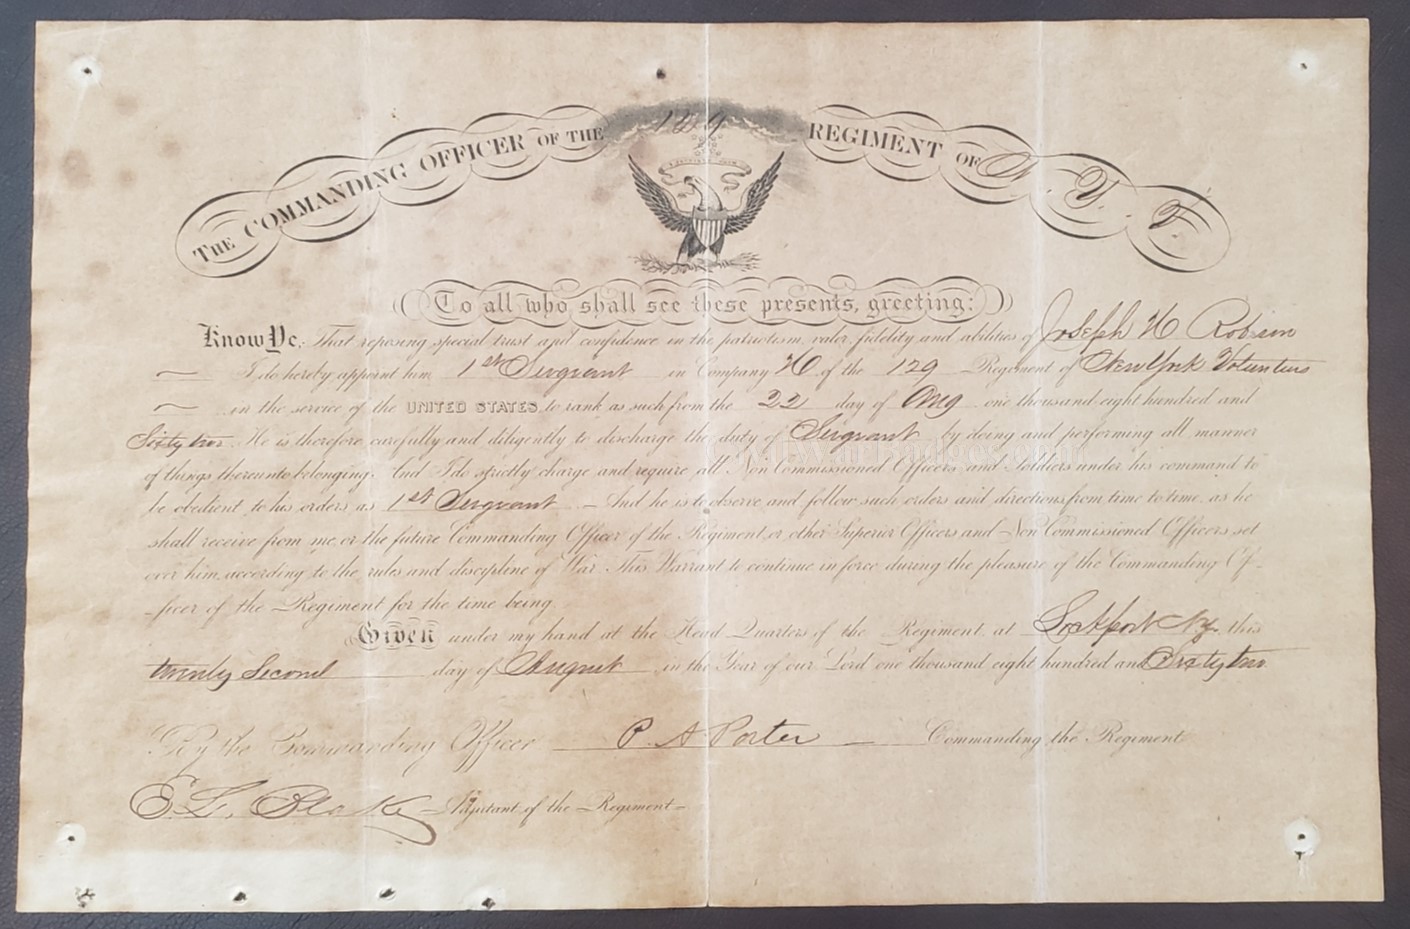 THE COMMANDING OFFICER OF THE 129 REGIMENT OF N. Y. V.
To all who shall see these presents, greeting:
Know Ye, That reposing special trust and confidence in the patriotism, valor, fidelity and abilities of Joseph H Robison
I do hereby appoint him 1st Sergeant in Company H of the 129 Regiment of New York Volunteers
in the service of the UNITED STATES, to rank as such from the 22 day of Aug one thousand eight hundred and
Sixty two. He is therefore carefully and diligently to discharge the duty of Sergeant by doing and performing all manner
of things thereunto belonging. And I do strictly charge and require all Non Commissioned Officers and Soldiers under his command to
be obedient to his orders as 1st Sergeant And he is to observe and follow such orders and directions from time to time, as he
shall receive from me, or the future Commanding Officer of the Regiment, or other Superior Officers and Non Commissioned Officers set
over him, according to the rules and discipline of War. This Warrant to continue in force during the pleasure of the Commanding Of-
-ficer of the Regiment for the time being.
Given under my hand at the Head Quarters of the Regiment, at Lockport Ny. this
twenty Second day of August in the Year of our Lord one thousand eight hundred and Sixty two
By the Commanding Officer P. A Porter Commanding the Regiment
E. L. Blake Adjutant of the Regiment
CivilWarBadges.com